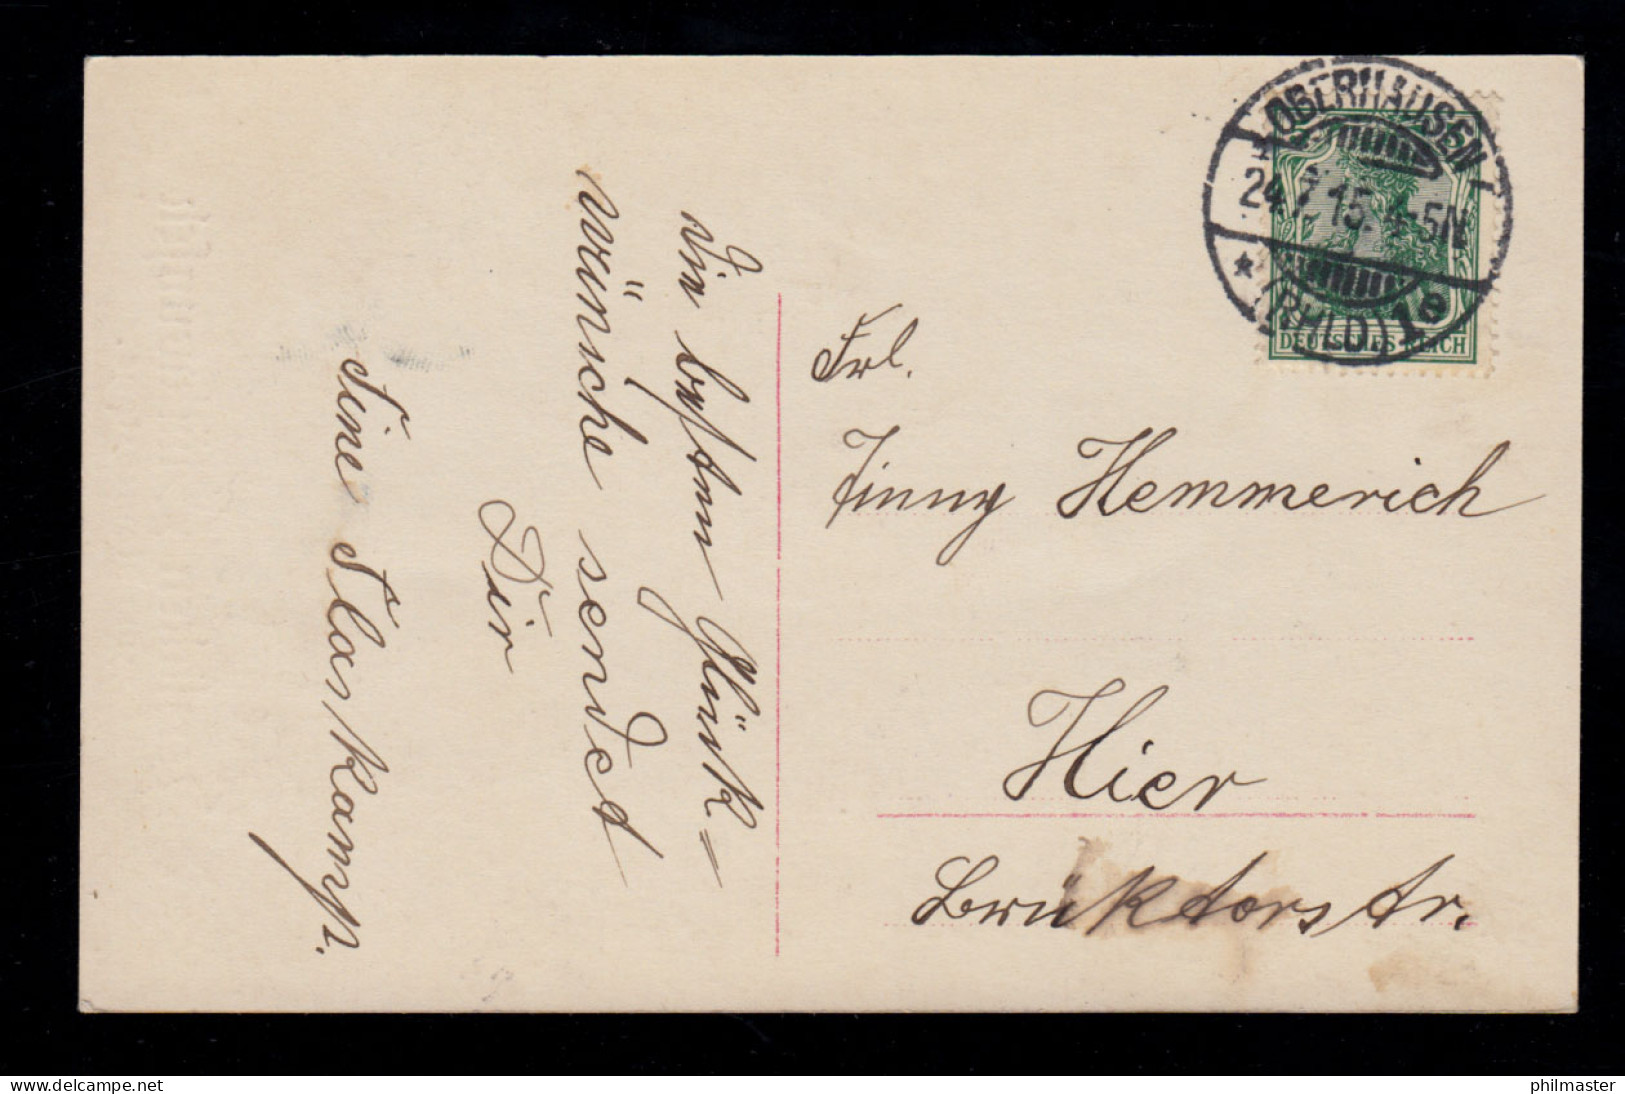 Die besten Glück=
wünsche sendet
Dir
Sine Flaskamp.
OBERHAUSEN
24.7.15. 4-5N
* (RHLD.) 1e
DEUTSCHES REICH
Frl.
Hemmerich
Hier
Brüktorstr.
www.delcampe.net
philmaster